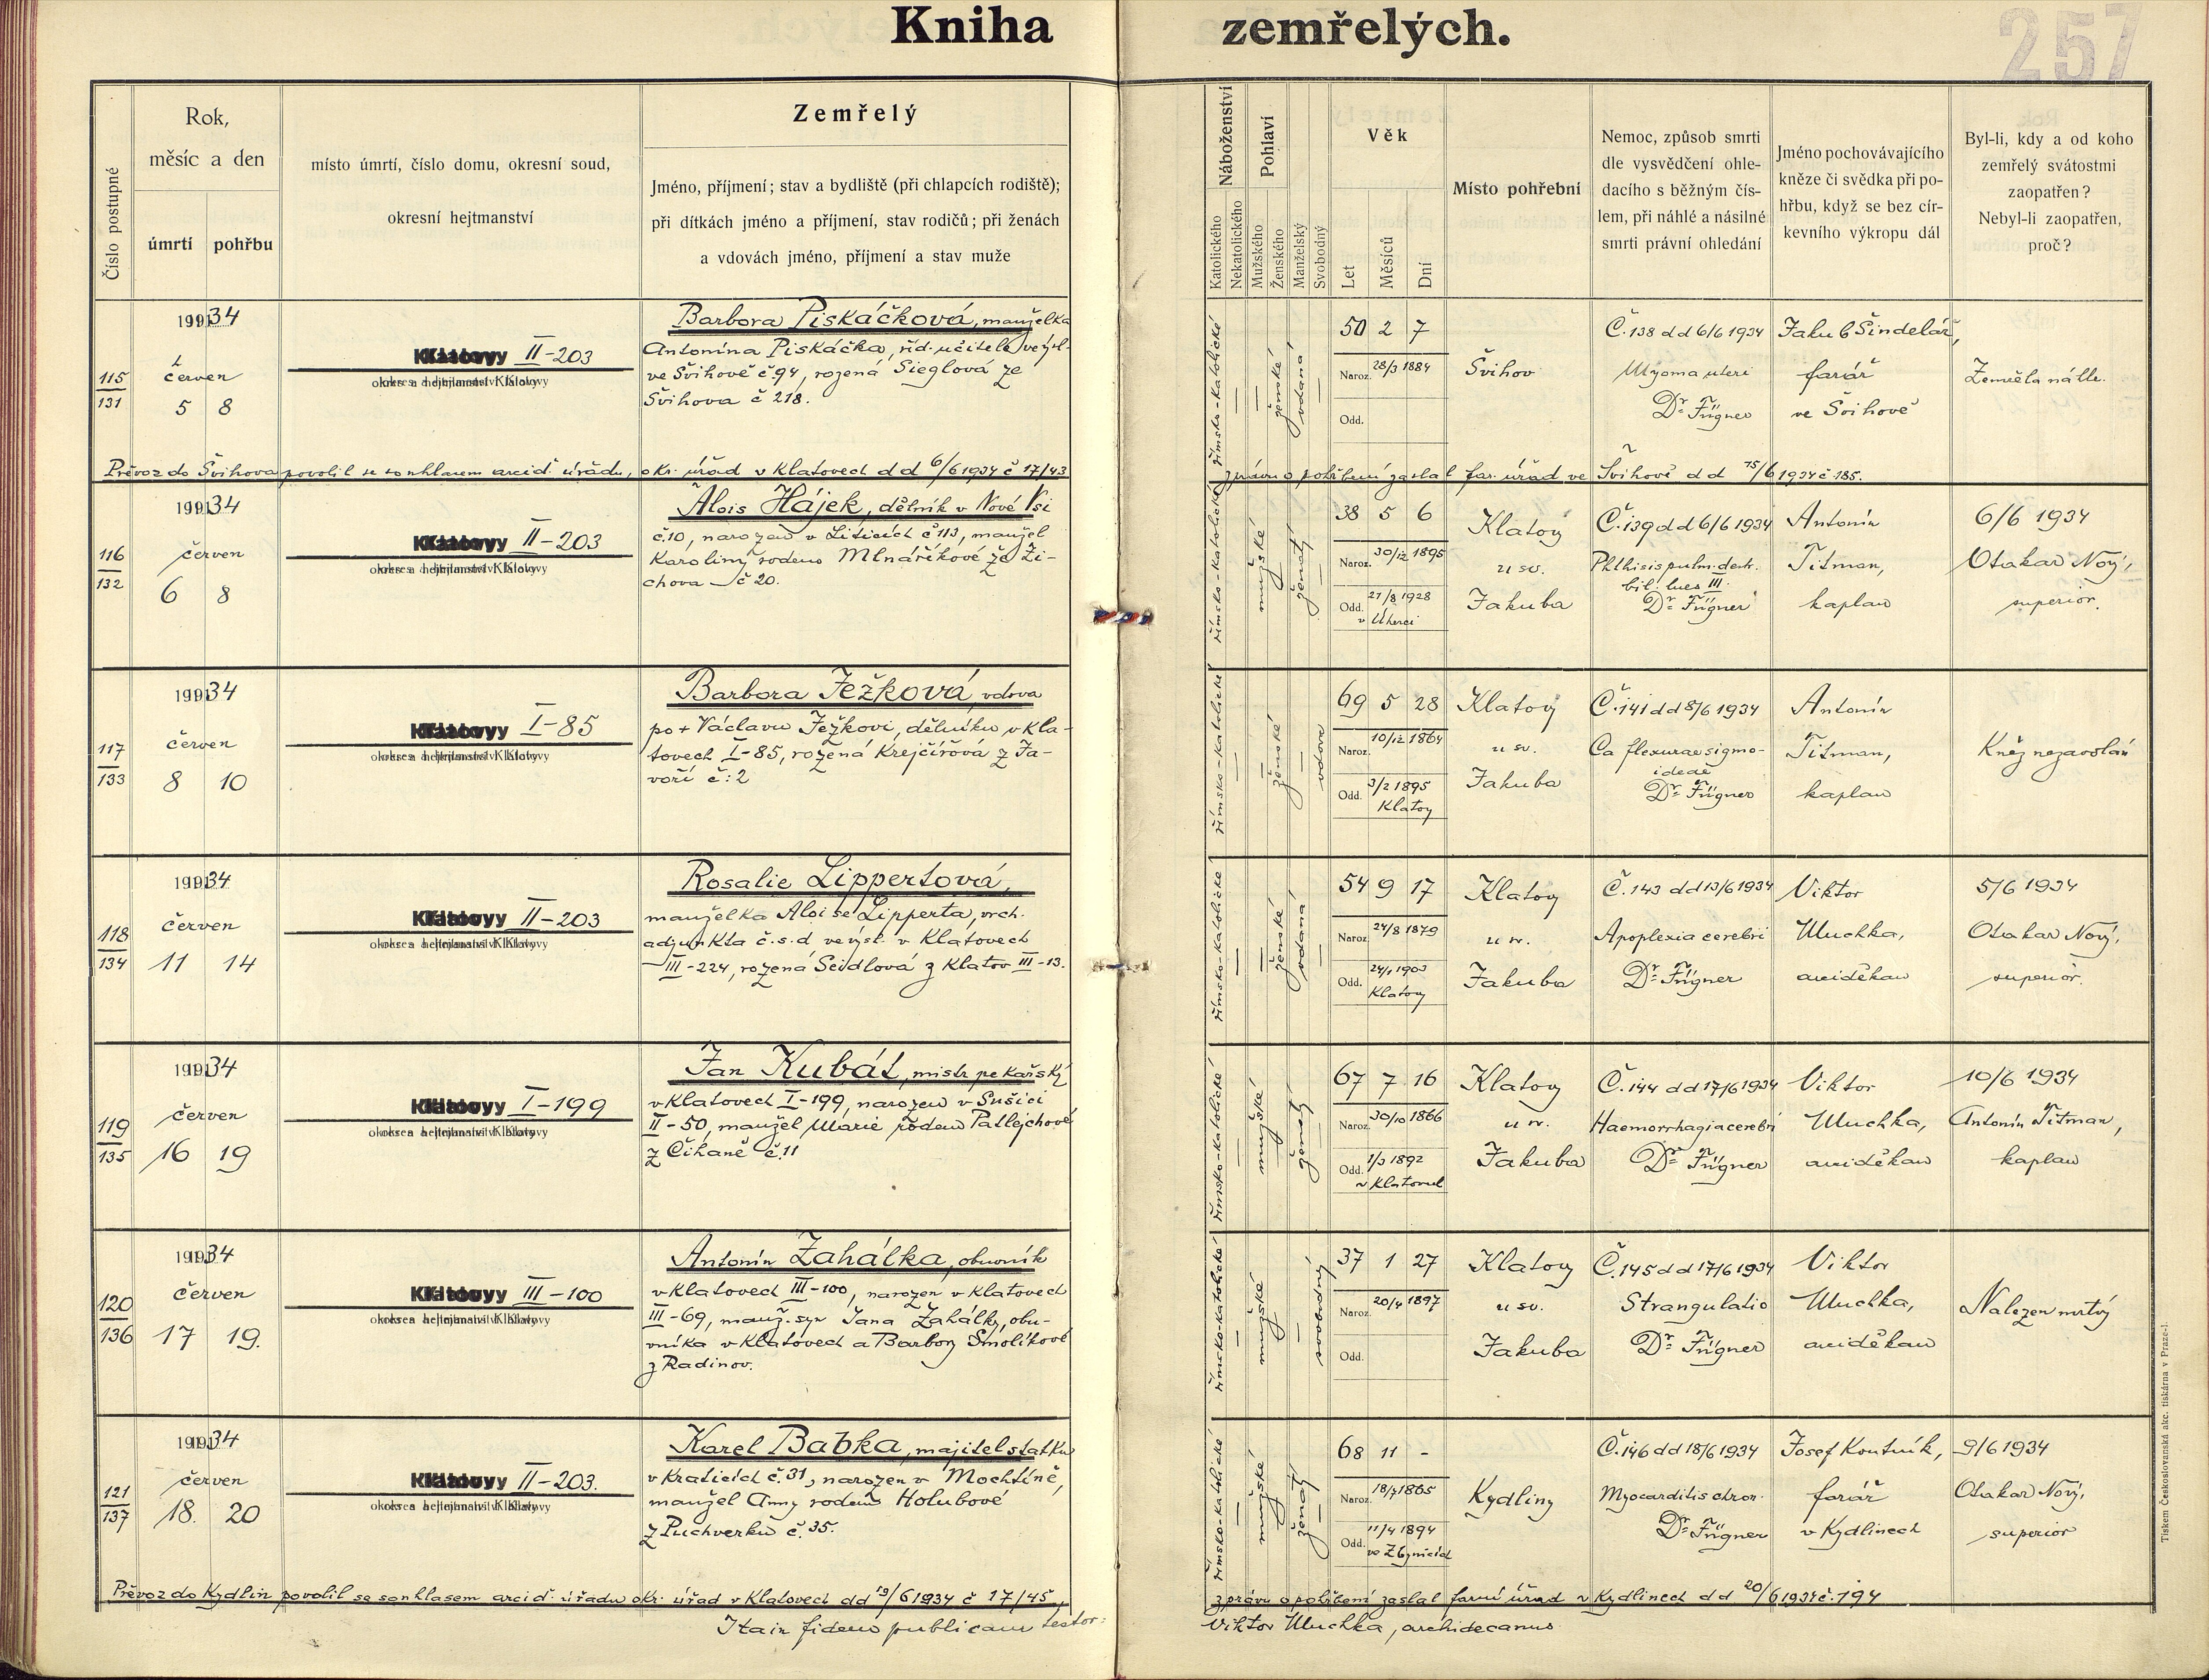 Kniha zemřelých.
257
Číslo postupné
Rok,
měsíc a den
úmrtí
pohřbu
místo úmrtí, číslo domu, okresní soud,
okresní hejtmanství
Zemřelý
Jméno, příjmení; stav a bydliště (při chlapcích rodiště);
při dítkách jméno a příjmení, stav rodičů; při ženách
a vdovách jméno, příjmení a stav muže
Náboženství
Katolického
Nekatolického
Pohlaví
Mužského
Ženského
Manželský
Svobodný
Věk
Let
Měsíců
Dní
Místo pohřební
Nemoc, způsob smrti
dle vysvědčení ohle-
dacího s běžným čís-
lem, při náhlé a násilné
smrti právní ohledání
Jméno pochovávajícího
kněze či svědka při po-
hřbu, když se bez cír-
kevního výkropu dál
Byl-li, kdy a od koho
zemřelý svátostmi
zaopatřen?
Nebyl-li zaopatřen,
proč?
115
131
1934
červen
5 8
Klatovy II-203
okres a hejtmanství Klatovy
Barbora Piskáčková, manželka
Antonína Piskáčka, říd. učitele ve výsl.
ve Švihově č.94, rozená Sieglová ze
Švihova č 218.
římsko-katolické
ženské
vdaná
50 2 7
Naroz. 28/3 1884
Odd.
Švihov
Č.138 dd 6/6 1934
Myoma uteri
Dr. Fügner
Jakub Šindelář,
farář
ve Švihově
Zemřela náhle.
Převoz do Švihova povolil se souhlasem arcid. úřadu, okr. úřad v Klatovech dd 6/6 1934 č 17/43
zprávu o pohřbení zaslal far. úřad ve Švihově dd 15/6 1934 č.185.
116
132
1934
červen
6 8
Klatovy II-203
okres a hejtmanství Klatovy
Alois Hájek, dělník v Nové Vsi
č.10, narozen v Liticích č 113, manžel
Karoliny rodem Mlnaříkové ze Ži-
chova č 20.
římsko-katolické
mužské
ženatý
38 5 6
Naroz. 30/12 1895
Odd. 21/8 1928
v Úherci
Klatovy
u sv.
Jakuba
Č.139 dd 6/6 1934
Phthisis pulm. dest.
bil. lues III.
Dr. Fügner
Antonín
Titman,
kaplan
6/6 1934
Otakar Nový,
superior.
117
133
1934
červen
8 10
Klatovy I-85
okres a hejtmanství Klatovy
Barbora Ježková, vdova
po + Václavu Ježkovi, dělníku v Kla-
tovech I-85, rozená Krejčířová z Ja-
voří č:2
římsko-katolické
ženské
vdova
69 5 28
Naroz. 10/12 1864
Odd. 3/2 1895
Klatovy
Klatovy
u sv.
Jakuba
Č.141 dd 8/6 1934
Ca flexurae sigmo-
ideae
Dr. Fügner
Antonín
Titman,
kaplan
Kněz nezavolán
118
134
1934
červen
11 14
Klatovy II-203
okres a hejtmanství Klatovy
Rosalie Lippertová,
manželka Aloise Lipperta, vrch.
adjunkta č.s.d ve výsl. v Klatovech
III-224, rozená Seidlová z Klatov III-13.
římsko-katolické
ženské
vdaná
54 9 17
Naroz. 24/8 1879
Odd. 24/1 1903
Klatovy
Klatovy
u sv.
Jakuba
Č.143 dd 13/6 1934
Apoplexia cerebri
Dr. Fügner
Viktor
Uluchka,
arciděkan
5/6 1934
Otakar Nový,
superior.
119
135
1934
červen
16 19
Klatovy I-199
okres a hejtmanství Klatovy
Jan Kubát, mistr pekařský
v Klatovech I-199, narozen v Sušici
II-50, manžel Marie rodem Patlejchové
z Čihaně č.11
římsko-katolické
mužské
ženatý
67 7 16
Naroz. 30/10 1866
Odd. 1/3 1892
v Klatovech
Klatovy
u sv.
Jakuba
Č.144 dd 17/6 1934
Haemorrhagia cerebri
Dr. Fügner
Viktor
Uluchka,
arciděkan
10/6 1934
Antonín Titman,
kaplan
120
136
1934
červen
17 19.
Klatovy III-100
okres a hejtmanství Klatovy
Antonín Zahálka, obuvník
v Klatovech III-100, narozen v Klatovech
III-69, manž. syn Jana Zahálky, obu-
vníka v Klatovech a Barbory Smolíkové
z Radinov.
římsko-katolické
mužské
svobodný
37 1 27
Naroz. 20/4 1897
Odd.
Klatovy
u sv.
Jakuba
Č.145 dd 17/6 1934
Strangulatio
Dr. Fügner
Viktor
Uluchka,
arciděkan
Nalezen mrtvý
121
137
1934
červen
18. 20
Klatovy II-203.
okres a hejtmanství Klatovy
Karel Babka, majitel statku
v Kraticích č.31, narozen v Mochtíně,
manžel Anny rodem Holubové
z Puchverku č.35.
římsko-katolické
mužské
ženatý
68 11 -
Naroz. 18/7 1865
Odd. 11/4 1894
ve Zbynicích
Kydliny
Č.146 dd 18/6 1934
Myocarditis chron.
Dr. Fügner
Josef Koutník,
farář
v Kydlinech
9/6 1934
Otakar Nový,
superior
Převoz do Kydlin povolil se souhlasem arcid. úřadu okr. úřad v Klatovech dd 19/6 1934 č 17/45,
zprávu o pohřbení zaslal farní úřad v Kydlinech dd 20/6 1934 č.194
Ita in fidem publicam testor:
Viktor Uluchka, archidecanus
Tiskem Československá akc. tiskárna v Praze-I.